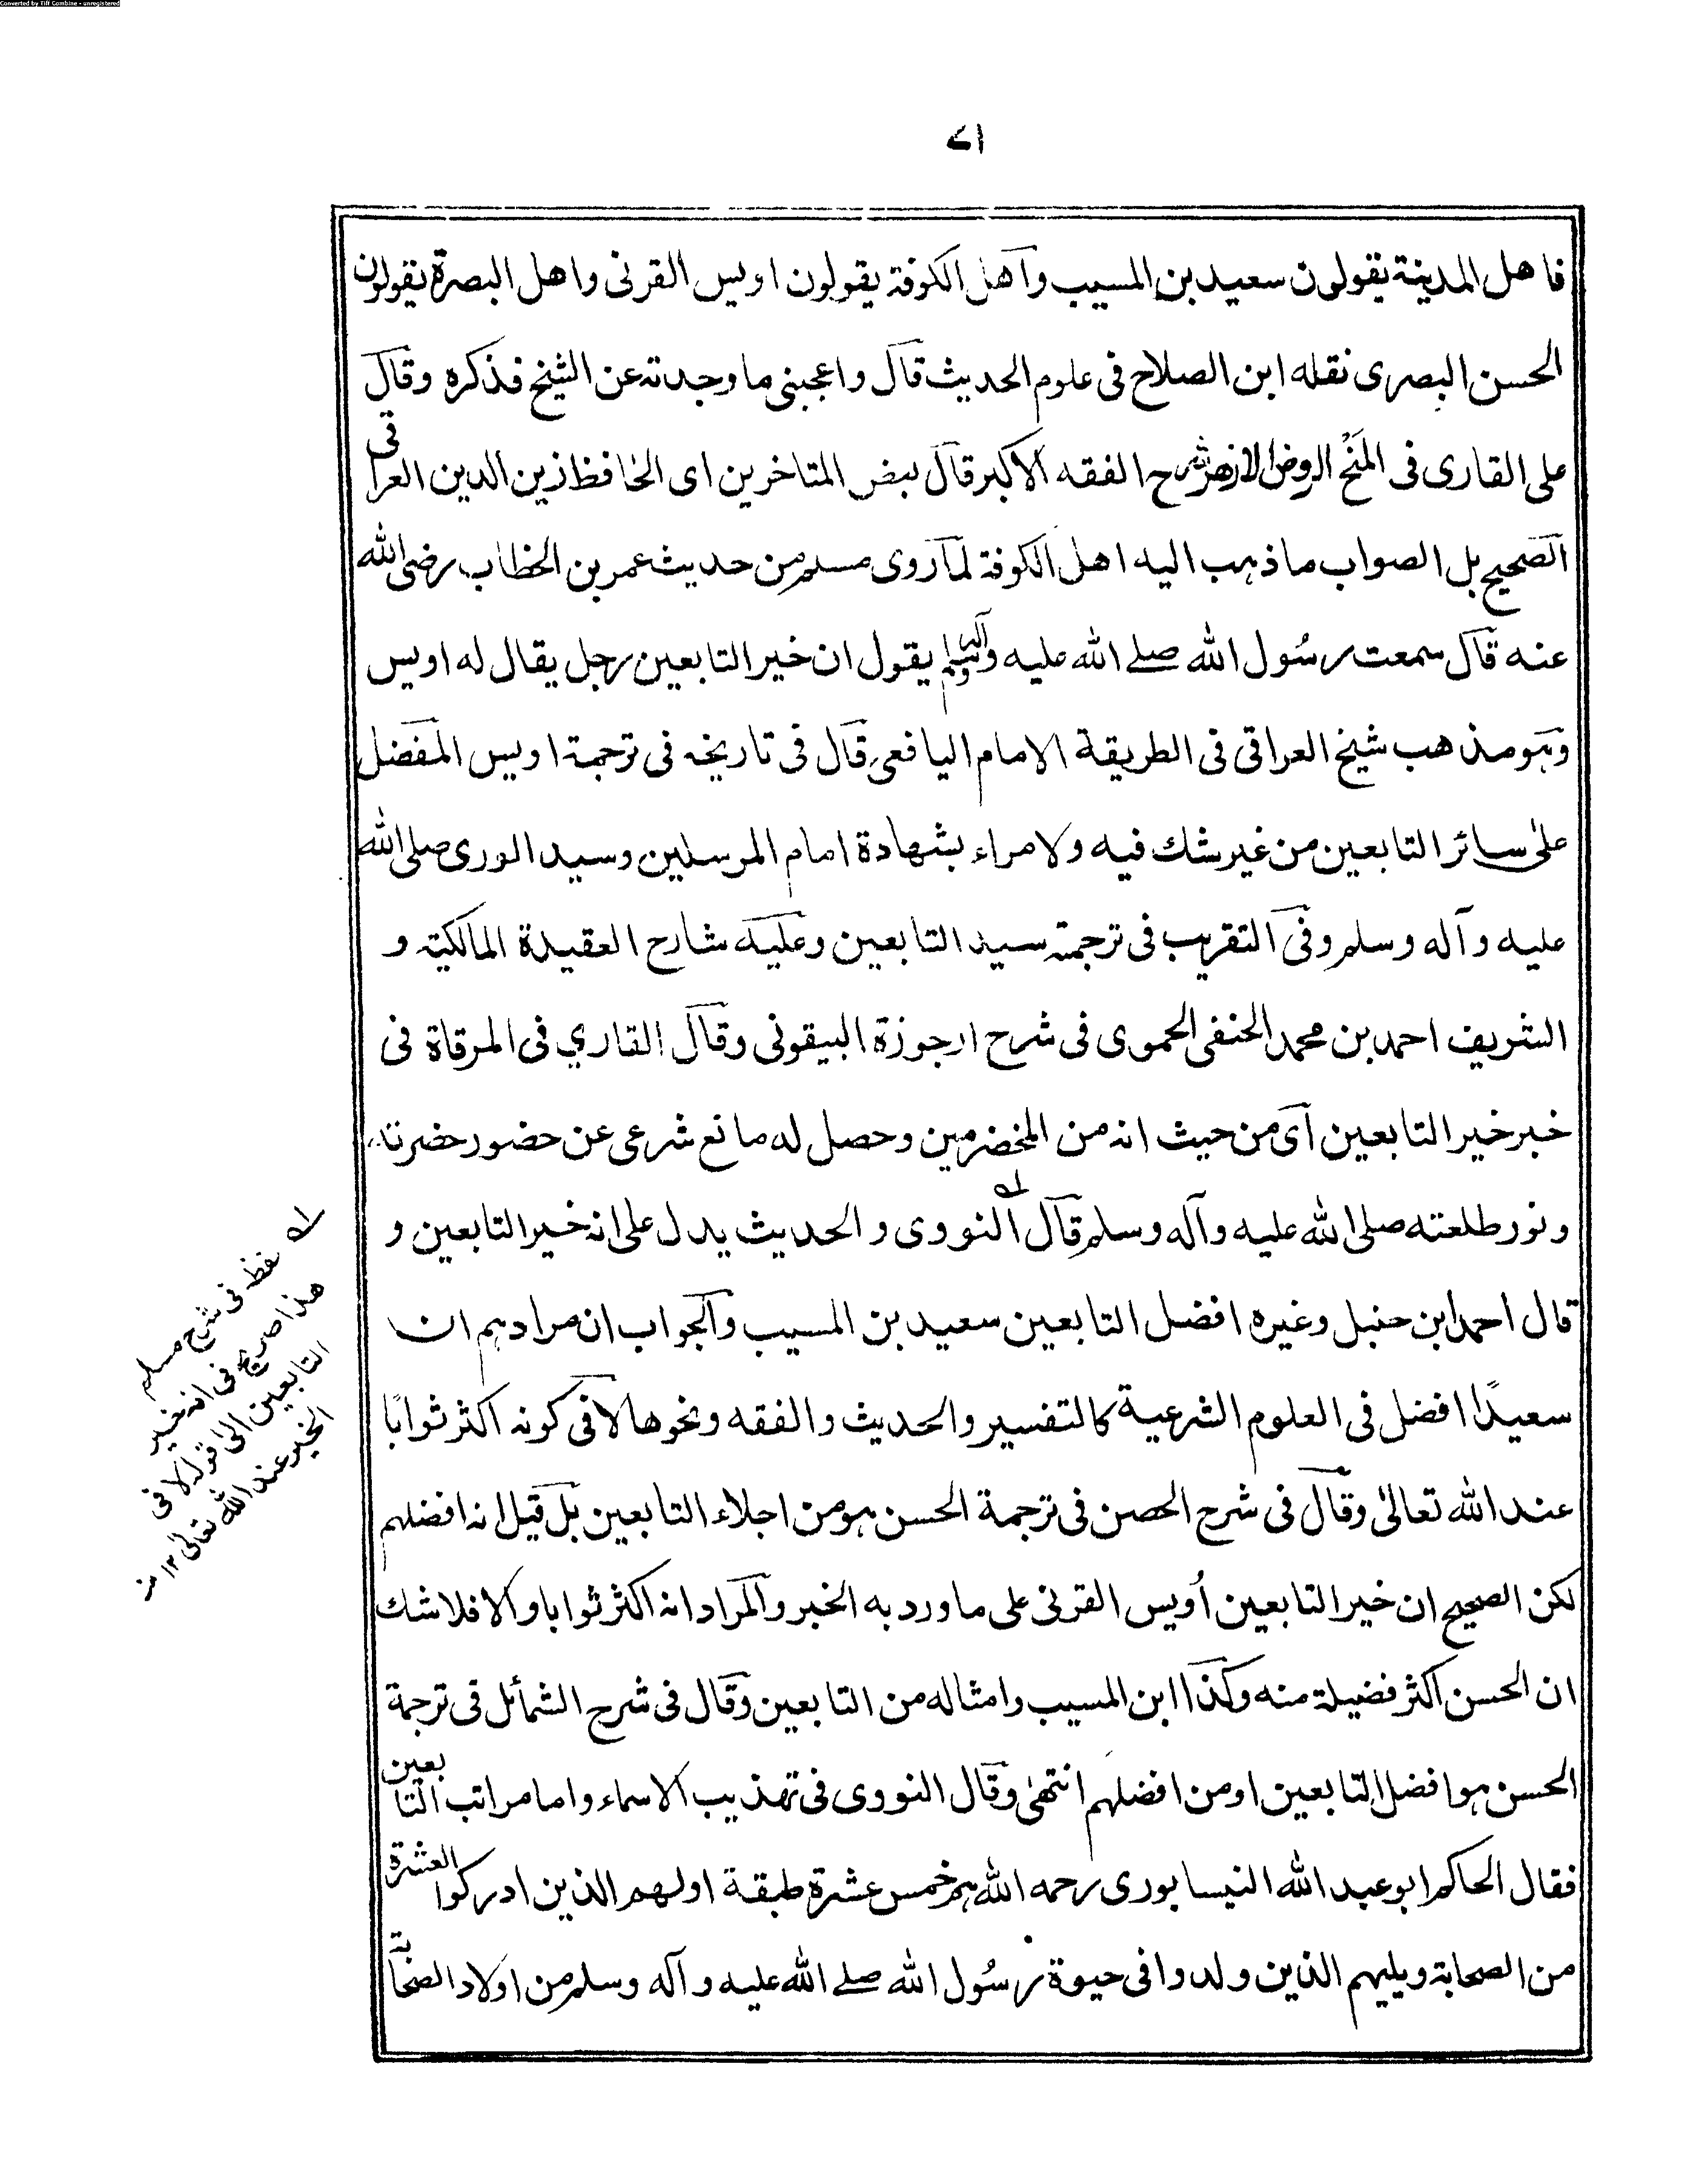 Converted by Tiff Combine - unregistered
٧١
فاهل المدينة يقولون سعيد بن المسيب واهل الكوفة يقولون اويس القرنى واهل البصرة يقولون
الحسن البصرى نقله ابن الصلاح فى علوم الحديث قال واعجبنى ما وجدته عن الشيخ فذكره وقال
على القارى فى المنح الروض الازهر شرح الفقه الاكبر قال بعض المتاخرين اى الحافظ زين الدين العراقى
الصحيح بل الصواب ما ذهب اليه اهل الكوفة لما روى مسلم من حديث عمر بن الخطاب رضى الله
عنه قال سمعت رسُول الله صلے الله عليه وآله وسلم يقول ان خير التابعين رجل يقال له اويس
وهو مذهب شيخ العراقى فى الطريقة الامام اليافعى قال فى تاريخه فى ترجمة اويس المفضل
علىٰ سائر التابعين من غير شك فيه ولا مراء بشهادة امام المرسلين وسيد الورى صلى الله
عليه وآله وسلم وفى التقريب فى ترجمته سيد التابعين وعليه شارح العقيدة المالكية و
الشريف احمد بن محمد الحنفى الحموى فى شرح ارجوزة البيقونى وقال القاري فى المرقاة فى
خبر خير التابعين آى من حيث انه من المخضرمين وحصل له مانع شرعى عن حضور حضرته
ونور طلعته صلى الله عليه وآله وسلم قال النووى والحديث يدل على انه خير التابعين و
قال احمد ابن حنبل وغيره افضل التابعين سعيد بن المسيب والجواب ان مرادهم ان
سعيدًا افضل فى العلوم الشرعية كالتفسير والحديث والفقه ونحوها لا فى كونه اكثر ثوابًا
عند الله تعالىٰ وقال فى شرح الحصن فى ترجمة الحسن هو من اجلاء التابعين بل قيل انه افضلهم
لكن الصحيح ان خير التابعين أويس القرنى على ما ورد به الخبر والمراد انه اكثر ثوابا والا فلا شك
ان الحسن اكثر فضيلة منه وكذا ابن المسيب وامثاله من التابعين وقال فى شرح الشمائل فى ترجمة
الحسن هو افضل التابعين او من افضلهم انتهىٰ وقال النووى فى تهذيب الاسماء واما مراتب التابعين
فقال الحاكم ابو عبد الله النيسابورى رحمه الله هم خمس عشرة طبقة اولهم الذين ادركوا العشرة
من الصحابة ويليهم الذين ولدوا فى حيوة رسُول الله صلے الله عليه وآله وسلم من اولاد الصحابة
فى شرح مسلم
هذا صريح فى انه خير
التابعين الى قوله لا فى
الخير عند الله تعالى ١٢ منه